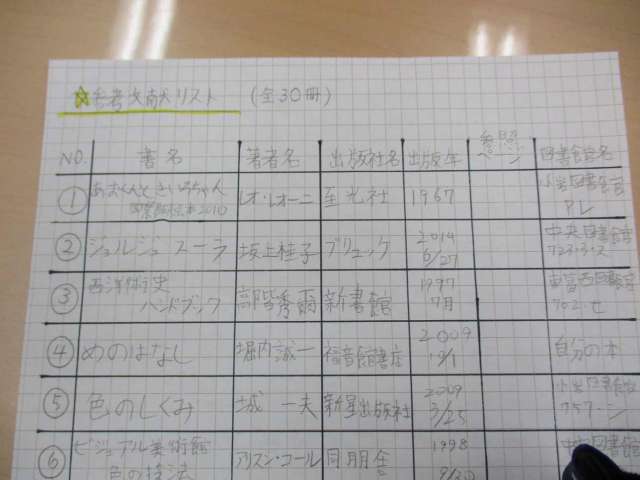 ☆参考文献リスト (全30冊)
NO. 書名 著者名 出版社名 出版年 参照ページ 図書館名
① あおくんときいろちゃん レオ・レオーニ 至光社 1967
② ジョルジュ スーラ 坂上桂子 ブリュッケ 2014 6/27 中央図書館 723・3・ス
③ 西洋美術史ハンドブック 高階秀爾 新書館 1997 7月 702・セ
④ めのはなし 堀内誠一 福音館書店 2009 自分の本
⑤ 色のしくみ 城 一夫 新星出版社 2009 3/25 757・シ
⑥ ビジュアル美術館 色の技法 アリスン・コール 同朋舎 1998 9/30 中央図書館